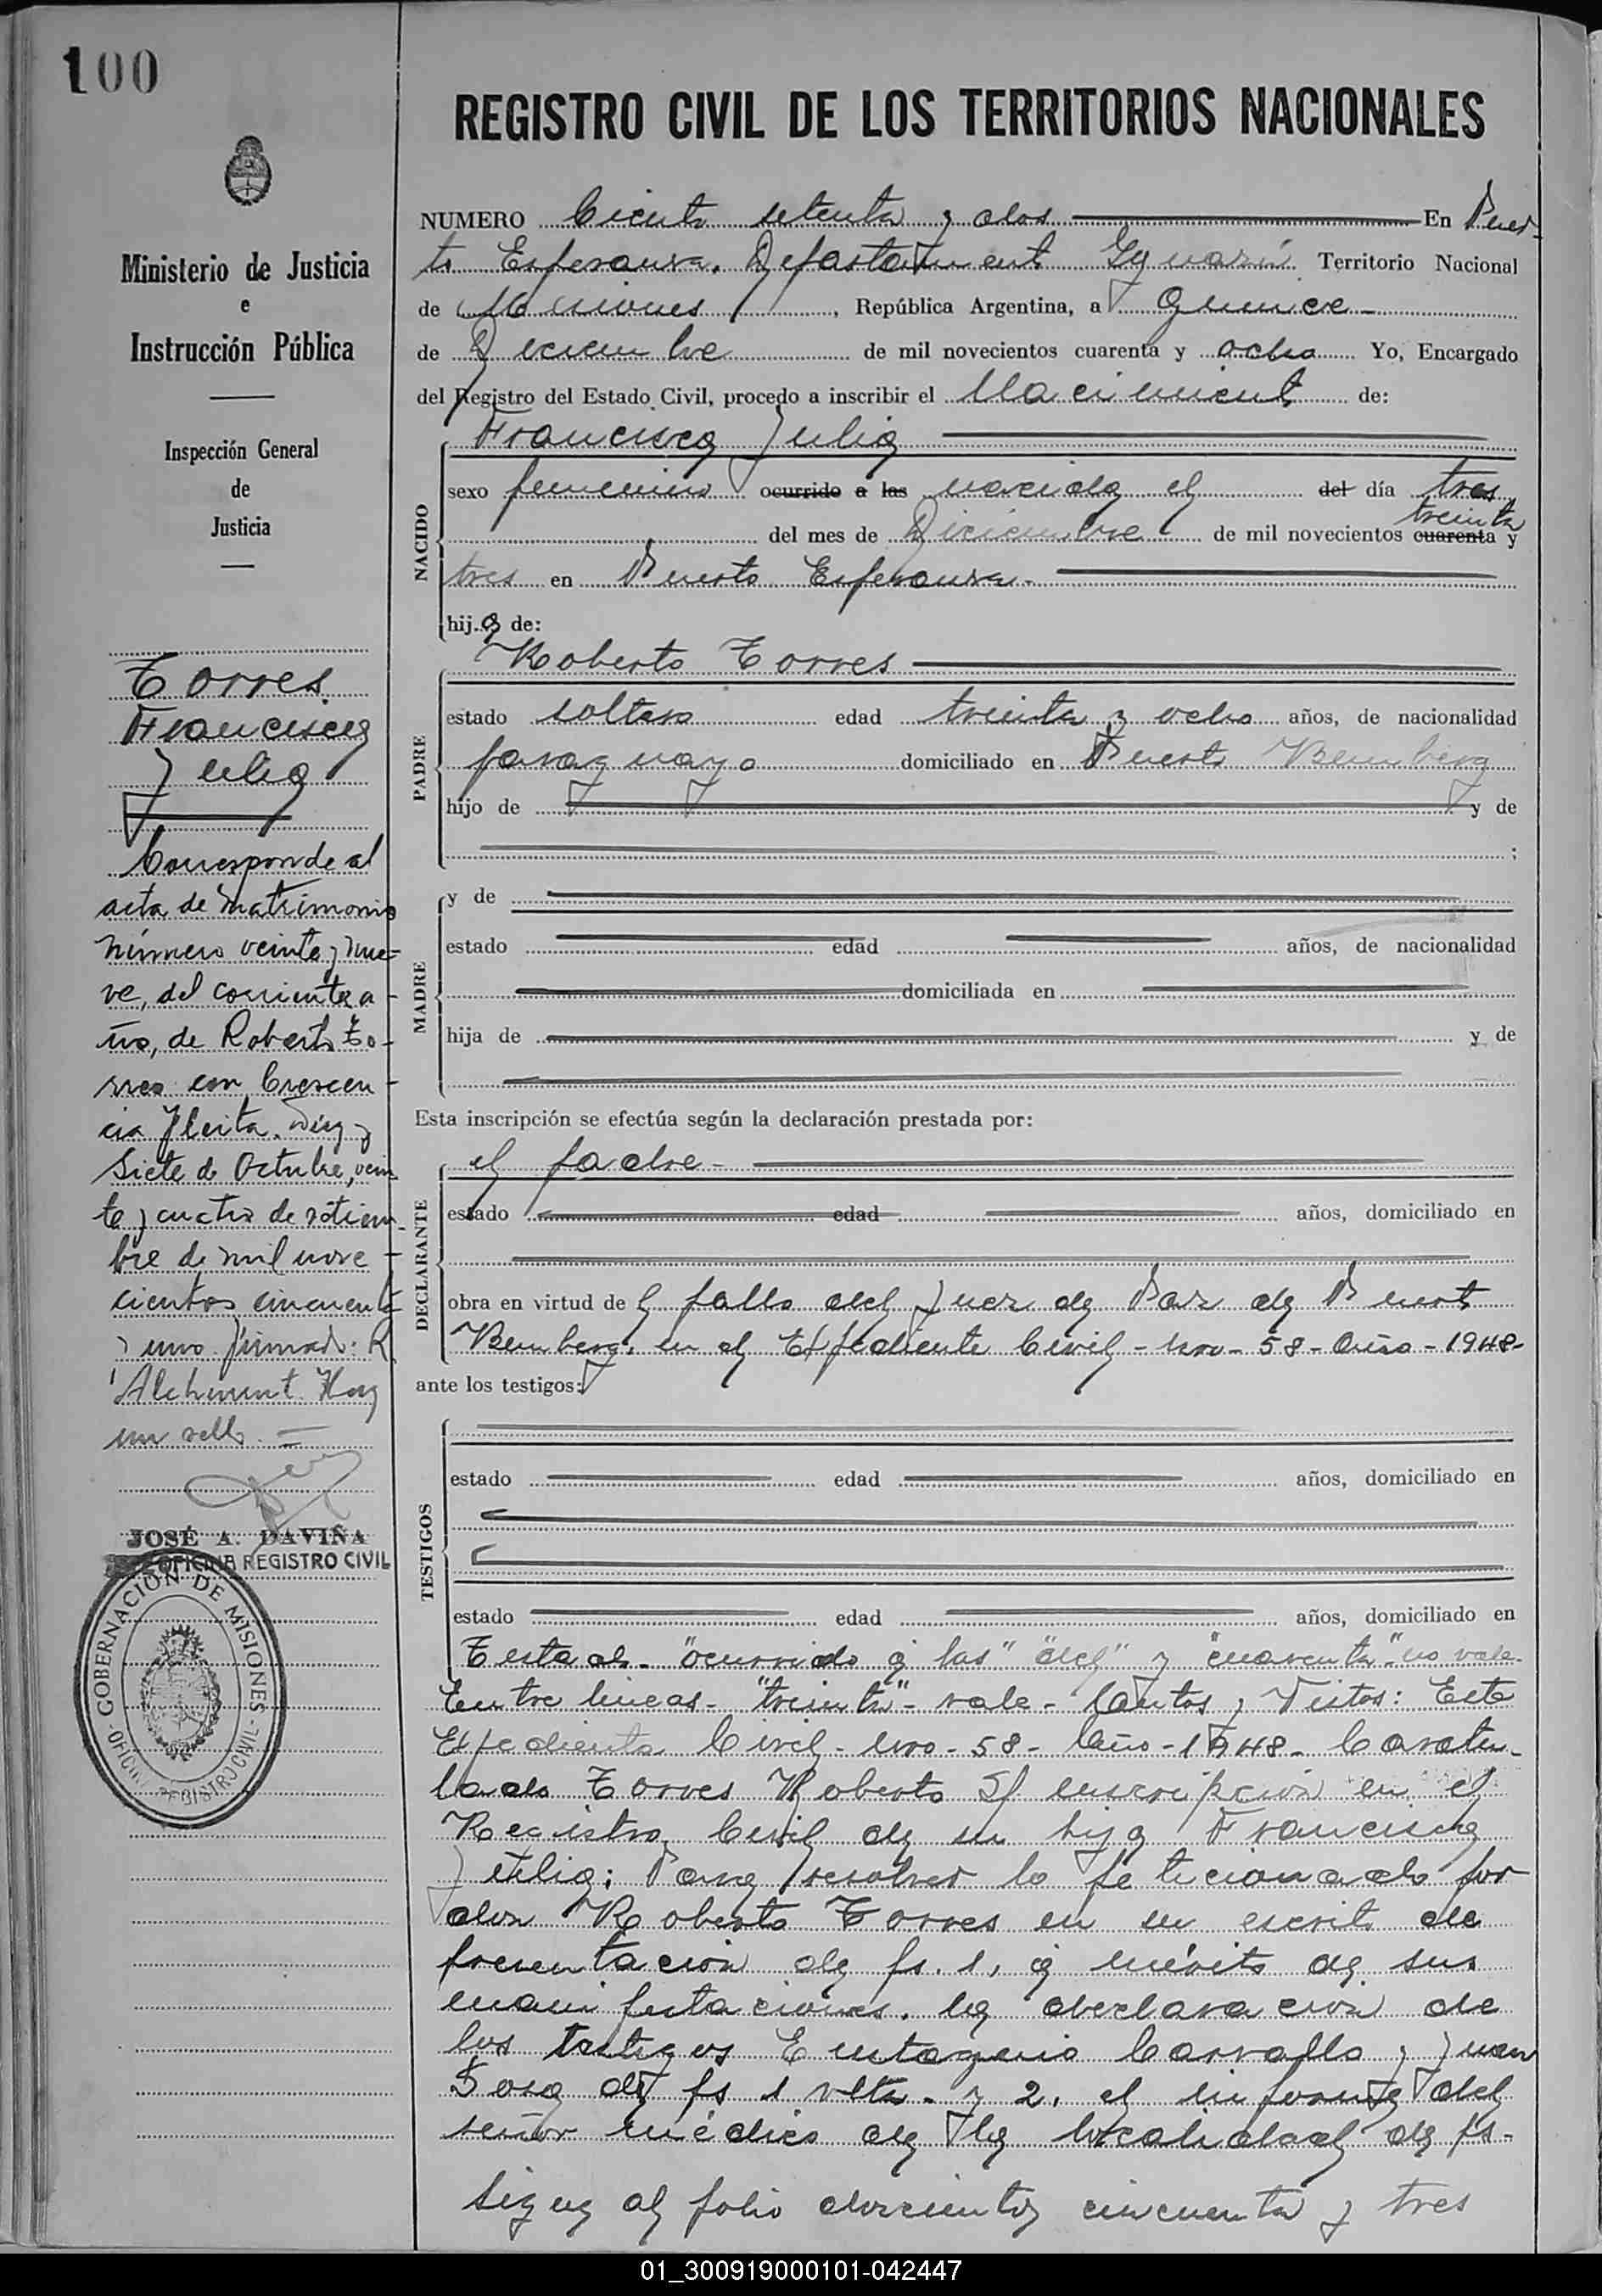 100
Ministerio de Justicia
e
Instrucción Pública
Inspección General
de
Justicia
Torres
Francisca
Julia
Corresponde al
acta de matrimonio
número veinte y nue-
ve, del corriente a-
ño, de Roberto To-
rres con Crescen-
cia Fleita. Diez y
siete de Octubre, vein
te y cuatro de setiem-
bre de mil nove-
cientos cincuenta
y uno. firmado: R.
Alchment. Hay
un sello. =
JOSÉ A. DAVIÑA
OFICINA REGISTRO CIVIL
GOBERNACIÓN DE MISIONES
- OFICINA REGISTRO CIVIL -
REGISTRO CIVIL DE LOS TERRITORIOS NACIONALES
NUMERO Ciento setenta y dos En Puer-
to Esperanza, Departament Iguazú Territorio Nacional
de Misiones, República Argentina, a quince
de Diciembre de mil novecientos cuarenta y ocho Yo, Encargado
del Registro del Estado Civil, procedo a inscribir el Nacimient de:
Francisca Julia
NACIDO
sexo femenino ocurrido a las nacida el del día tres
treinta
del mes de Diciembre de mil novecientos cuarenta y
tres en Puerto Esperanza.
hija de:
Roberto Torres
PADRE
estado soltero edad treinta y ocho años, de nacionalidad
paraguayo domiciliado en Puerto Bemberg
hijo de y de
;
MADRE
y de
estado edad años, de nacionalidad
domiciliada en
hija de y de
Esta inscripción se efectúa según la declaración prestada por:
el padre-
DECLARANTE
estado edad años, domiciliado en
obra en virtud de el fallo del Juez de Paz de Puerto
Bemberg, en el Expediente Civil - Nro - 58 - Año - 1948-
ante los testigos:
TESTIGOS
estado edad años, domiciliado en
estado edad años, domiciliado en
Testado- "ocurrido a las" "del" y "cuarenta" no vale-
Entre lineas- "treinta"- vale- Autos y Vistos: Este
Expediente Civil- Nro- 58- Año- 1948- Caratu-
lado Torres Roberto S/ inscripción en el
Registro Civil de su hija Francisca
Julia; Para resolver lo peticionado por
don Roberto Torres en su escrito de
presentación de fs. 1, a mérito de sus
manifestaciones, la declaración de
los testigos Carvallo y Juan
Sosa de fs 1 vlta. y 2, el informe del
señor médico de la localidad de fs-
Sigue al folio doscientos cincuenta y tres
01_300919000101-042447